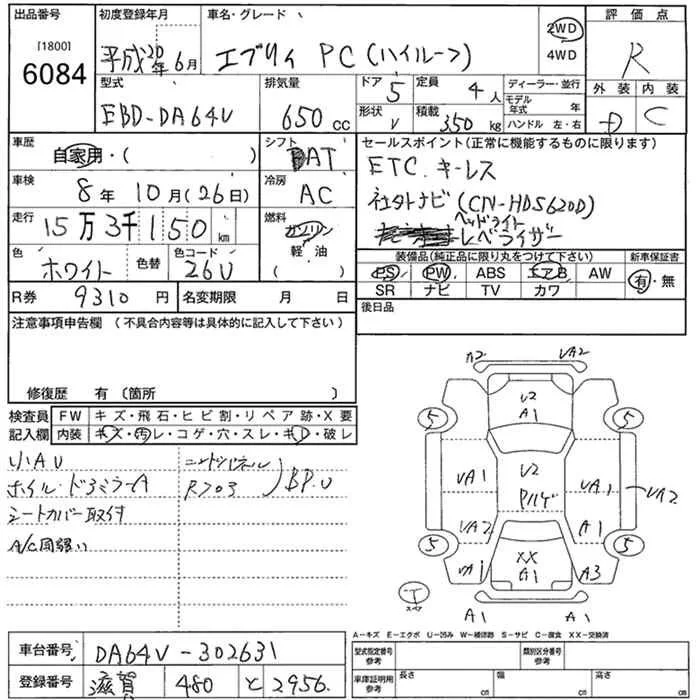 出品番号 初度登録年月 車名・グレード 評価点
[1800]
6084
平成20年6月 エブリィ PC(ハイルーフ) 2WD R
4WD
型式 排気量 ドア 定員 ディーラー・並行 外装 内装
EBD-DA64V 650cc 5 4人 モデル年式 年 D C
形状 積載 ハンドル 左・右
V 350kg
車歴 シフト セールスポイント(正常に機能するものに限ります)
自家用・( ) AT ETC. キーレス
車検 冷房
8年 10月(26日) AC 社外ナビ(CN-HDS620D)
走行 燃料 ヘッドライト
15万3千150km ガソリン レベライザー
軽油
( )
色 色替 色コード
ホワイト 26U
装備品(純正品に限り丸をつけて下さい) 新車保証書
PS PW ABS エアB AW 有・無
SR ナビ TV カワ
R券 9310円 名変期限 月 日
後日品
注意事項申告欄(不具合内容等は具体的に記入して下さい)
修復歴 有(箇所 )
検査員 FW キズ・飛石・ヒビ割・リペア跡・X要
記入欄 内装 キズ・汚レ・コゲ・穴・スレ・キレ・破レ
小AU
ホイル・ドアミラーA
シートカバー取付
R703
BP.U
A2 VA2
V2
A1
5 5
VA1 V2 VA1 VA2
VA2 A1
5 XX 5
VA1 A1 A3
T
スペア
A1 A1
A-キズ E-エクボ U-凹み W-補修跡 S-サビ C-腐食 XX-交換済
車台番号 DA64V-302631
登録番号 滋賀 480 と 2956
型式指定番号 参考 類別区分番号 参考
車庫証明用 参考 長さ cm 幅 cm 高さ cm